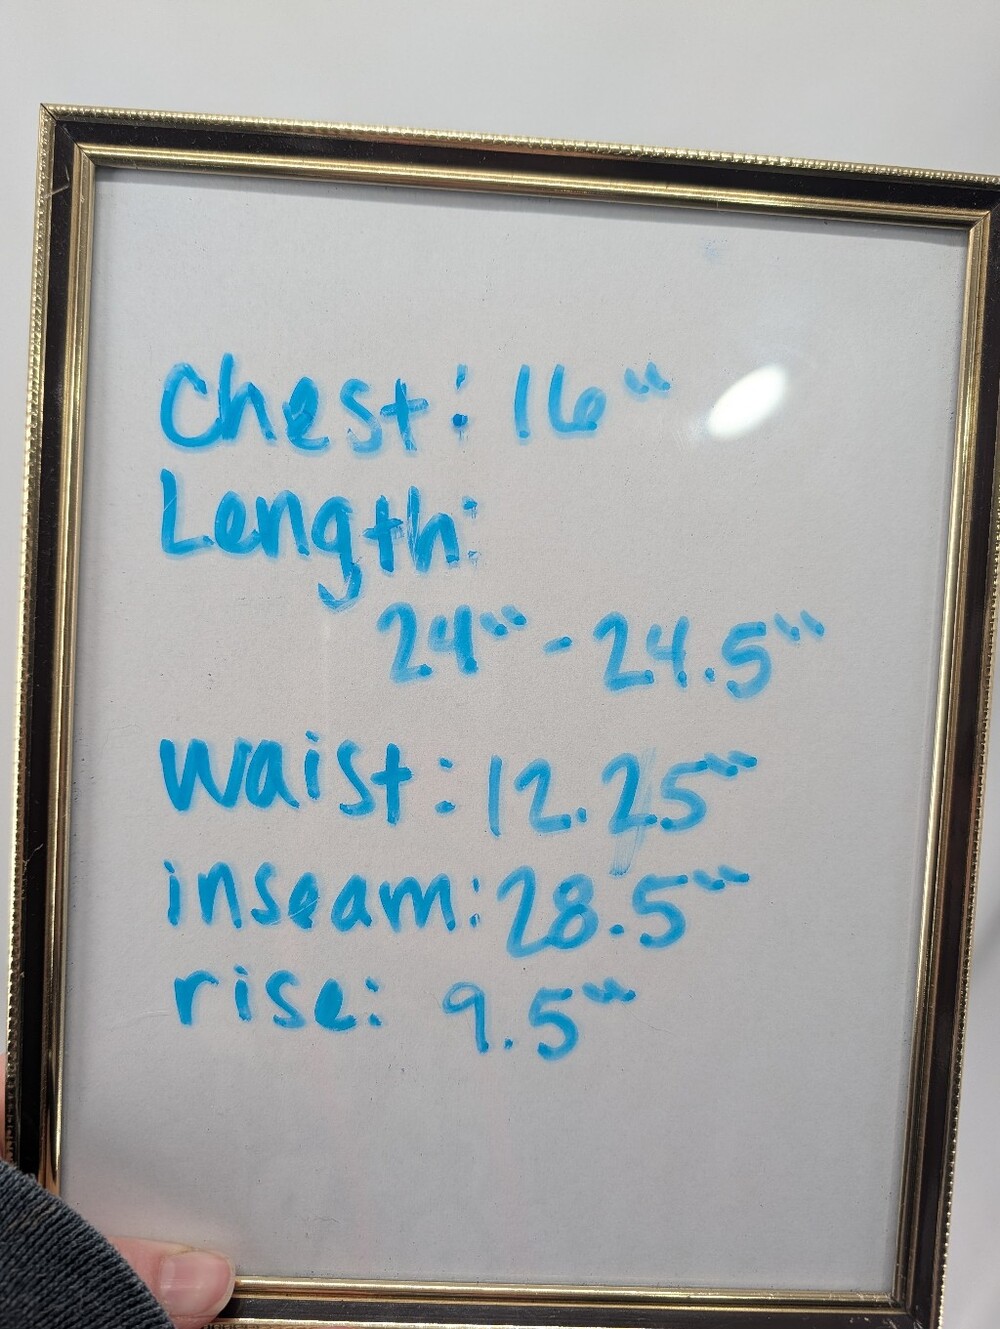 Chest: 16"
Length:
24" - 24.5"
waist: 12.25"
inseam: 28.5"
rise: 9.5"